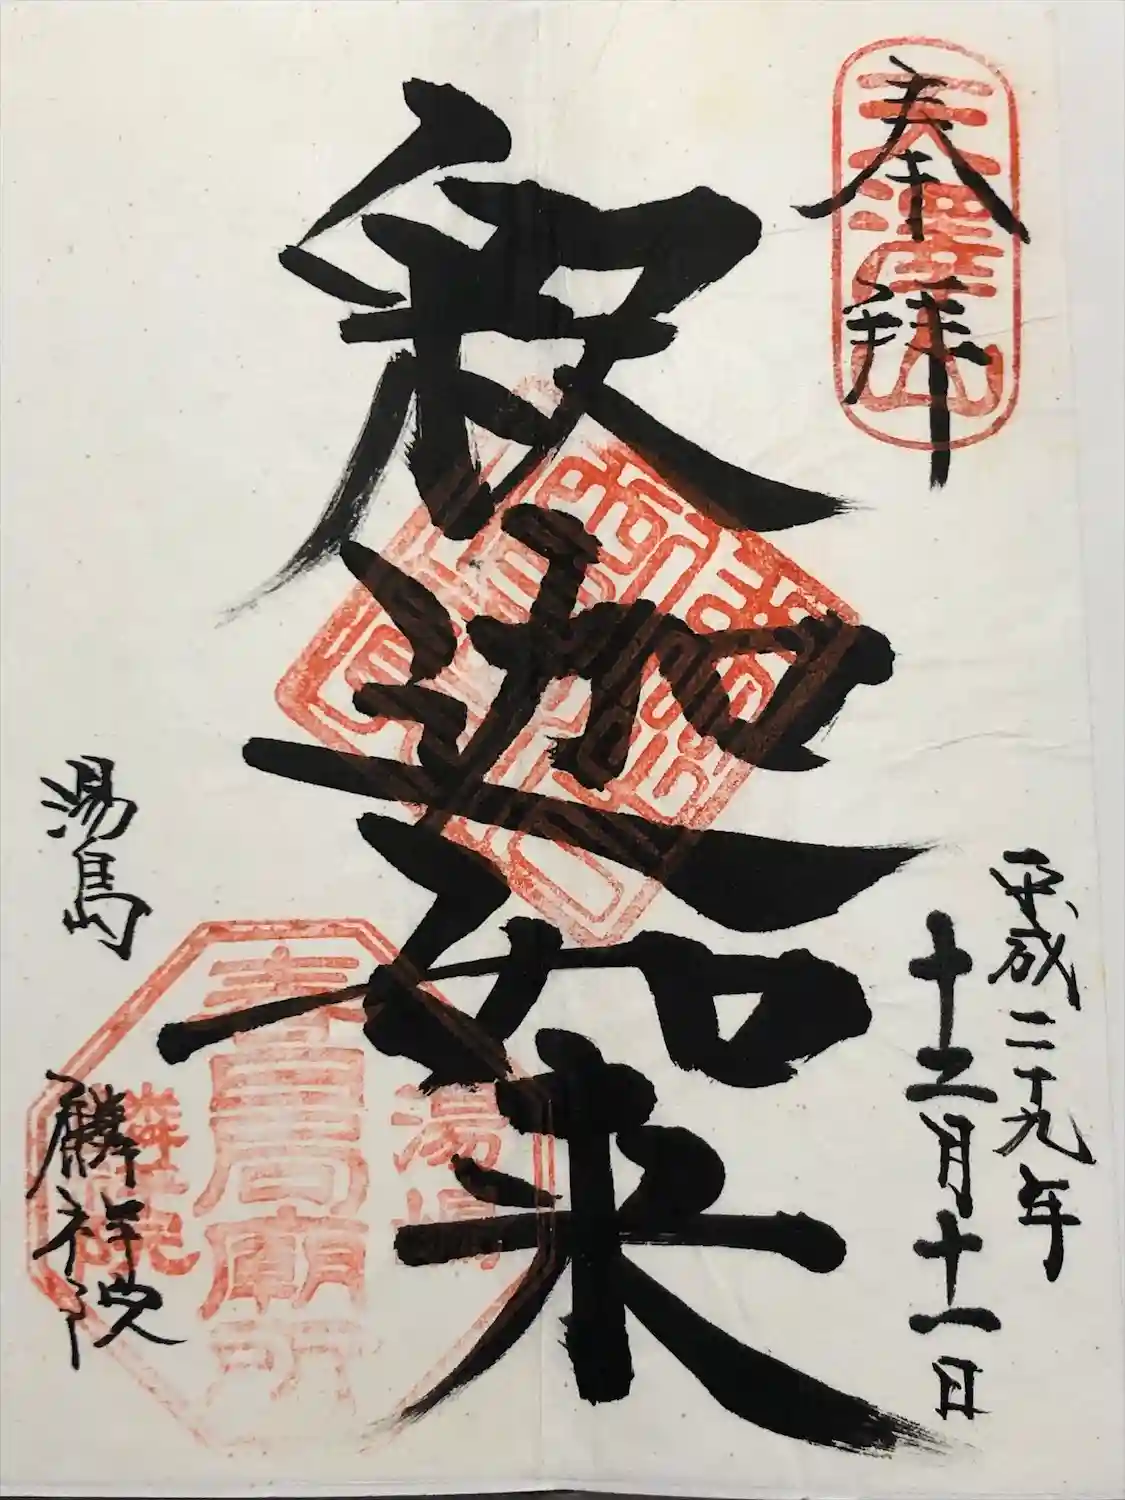 奉拝
天澤山
平成二十九年
十二月十一日
釈迦如来
湯島
麟祥院
湯島
春日局廟所
麟祥院